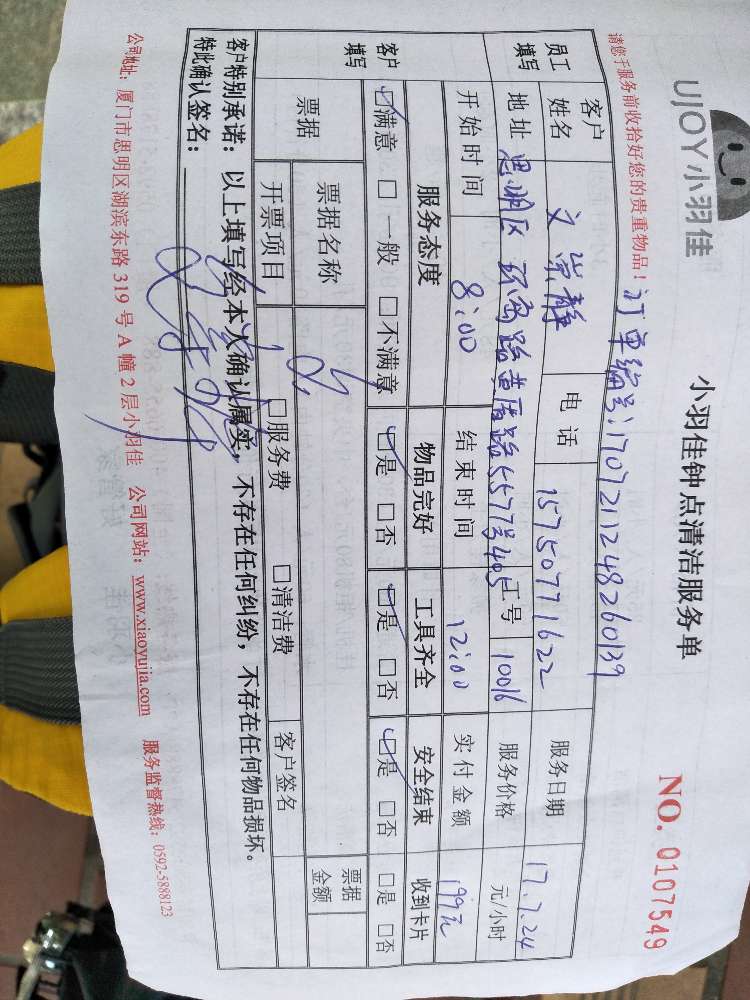 UJOY小羽佳
小羽佳钟点清洁服务单
NO. 0107549
请您于服务前收拾好您的贵重物品！
订单编号:1707211248260139
员工填写
客户姓名 文崇静 电话 15750771622 服务日期 17.7.24
地址 思明区环岛路黄厝路557号405 工号 10016 服务价格 元/小时
开始时间 8:00 结束时间 12:00 实付金额 199元
客户填写
服务态度 物品完好 工具齐全 安全结束 收到卡片
☑满意 □一般 □不满意 ☑是 □否 ☑是 □否 ☑是 □否 □是 □否
票据 票据名称 票据金额
开票项目 □服务费 □清洁费 客户签名
客户特别承诺：以上填写经本人确认属实，不存在任何纠纷，不存在任何物品损坏。
特此确认签名：
公司地址：厦门市思明区湖滨东路 319 号 A 幢 2 层小羽佳 公司网站：www.xiaoyujia.com 服务监督热线：0592-5888123